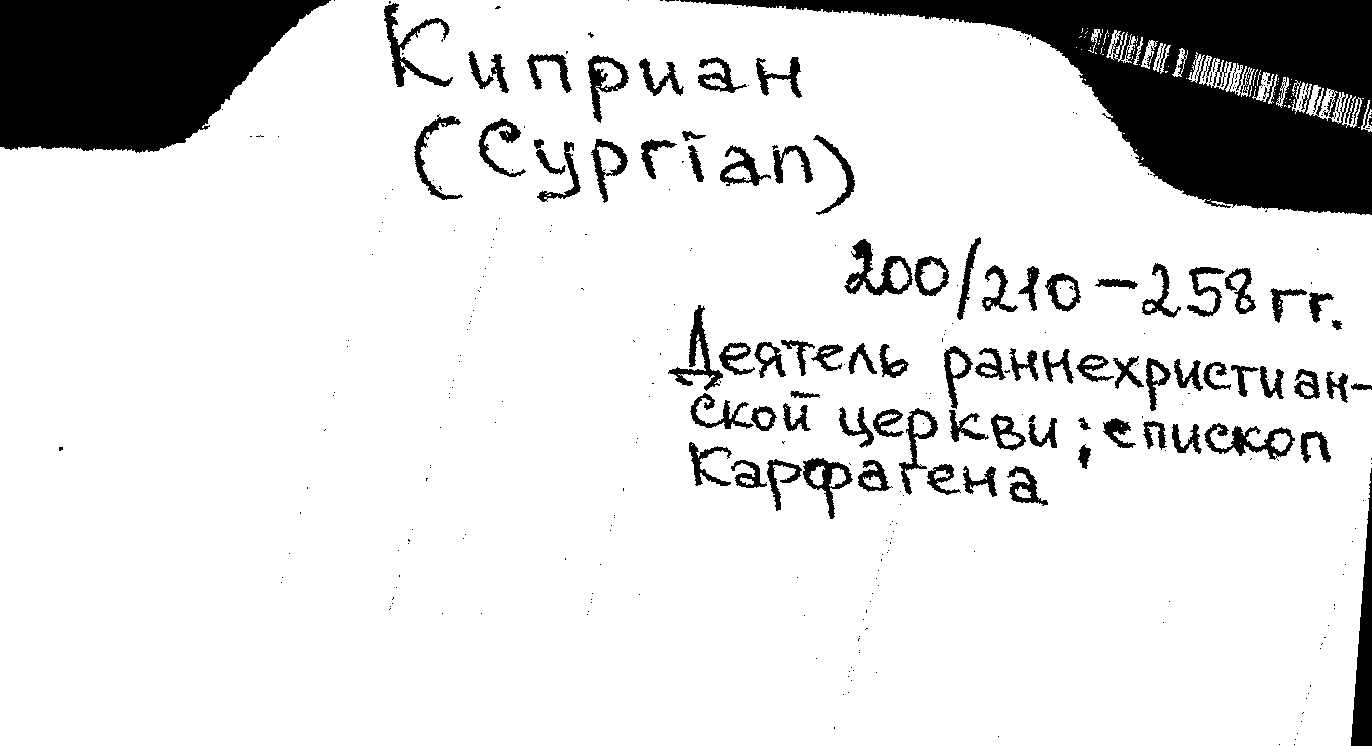 Киприан
(Cyprian)
200/210-258 гг.
Деятель раннехристиан-
ской церкви; епископ
Карфагена